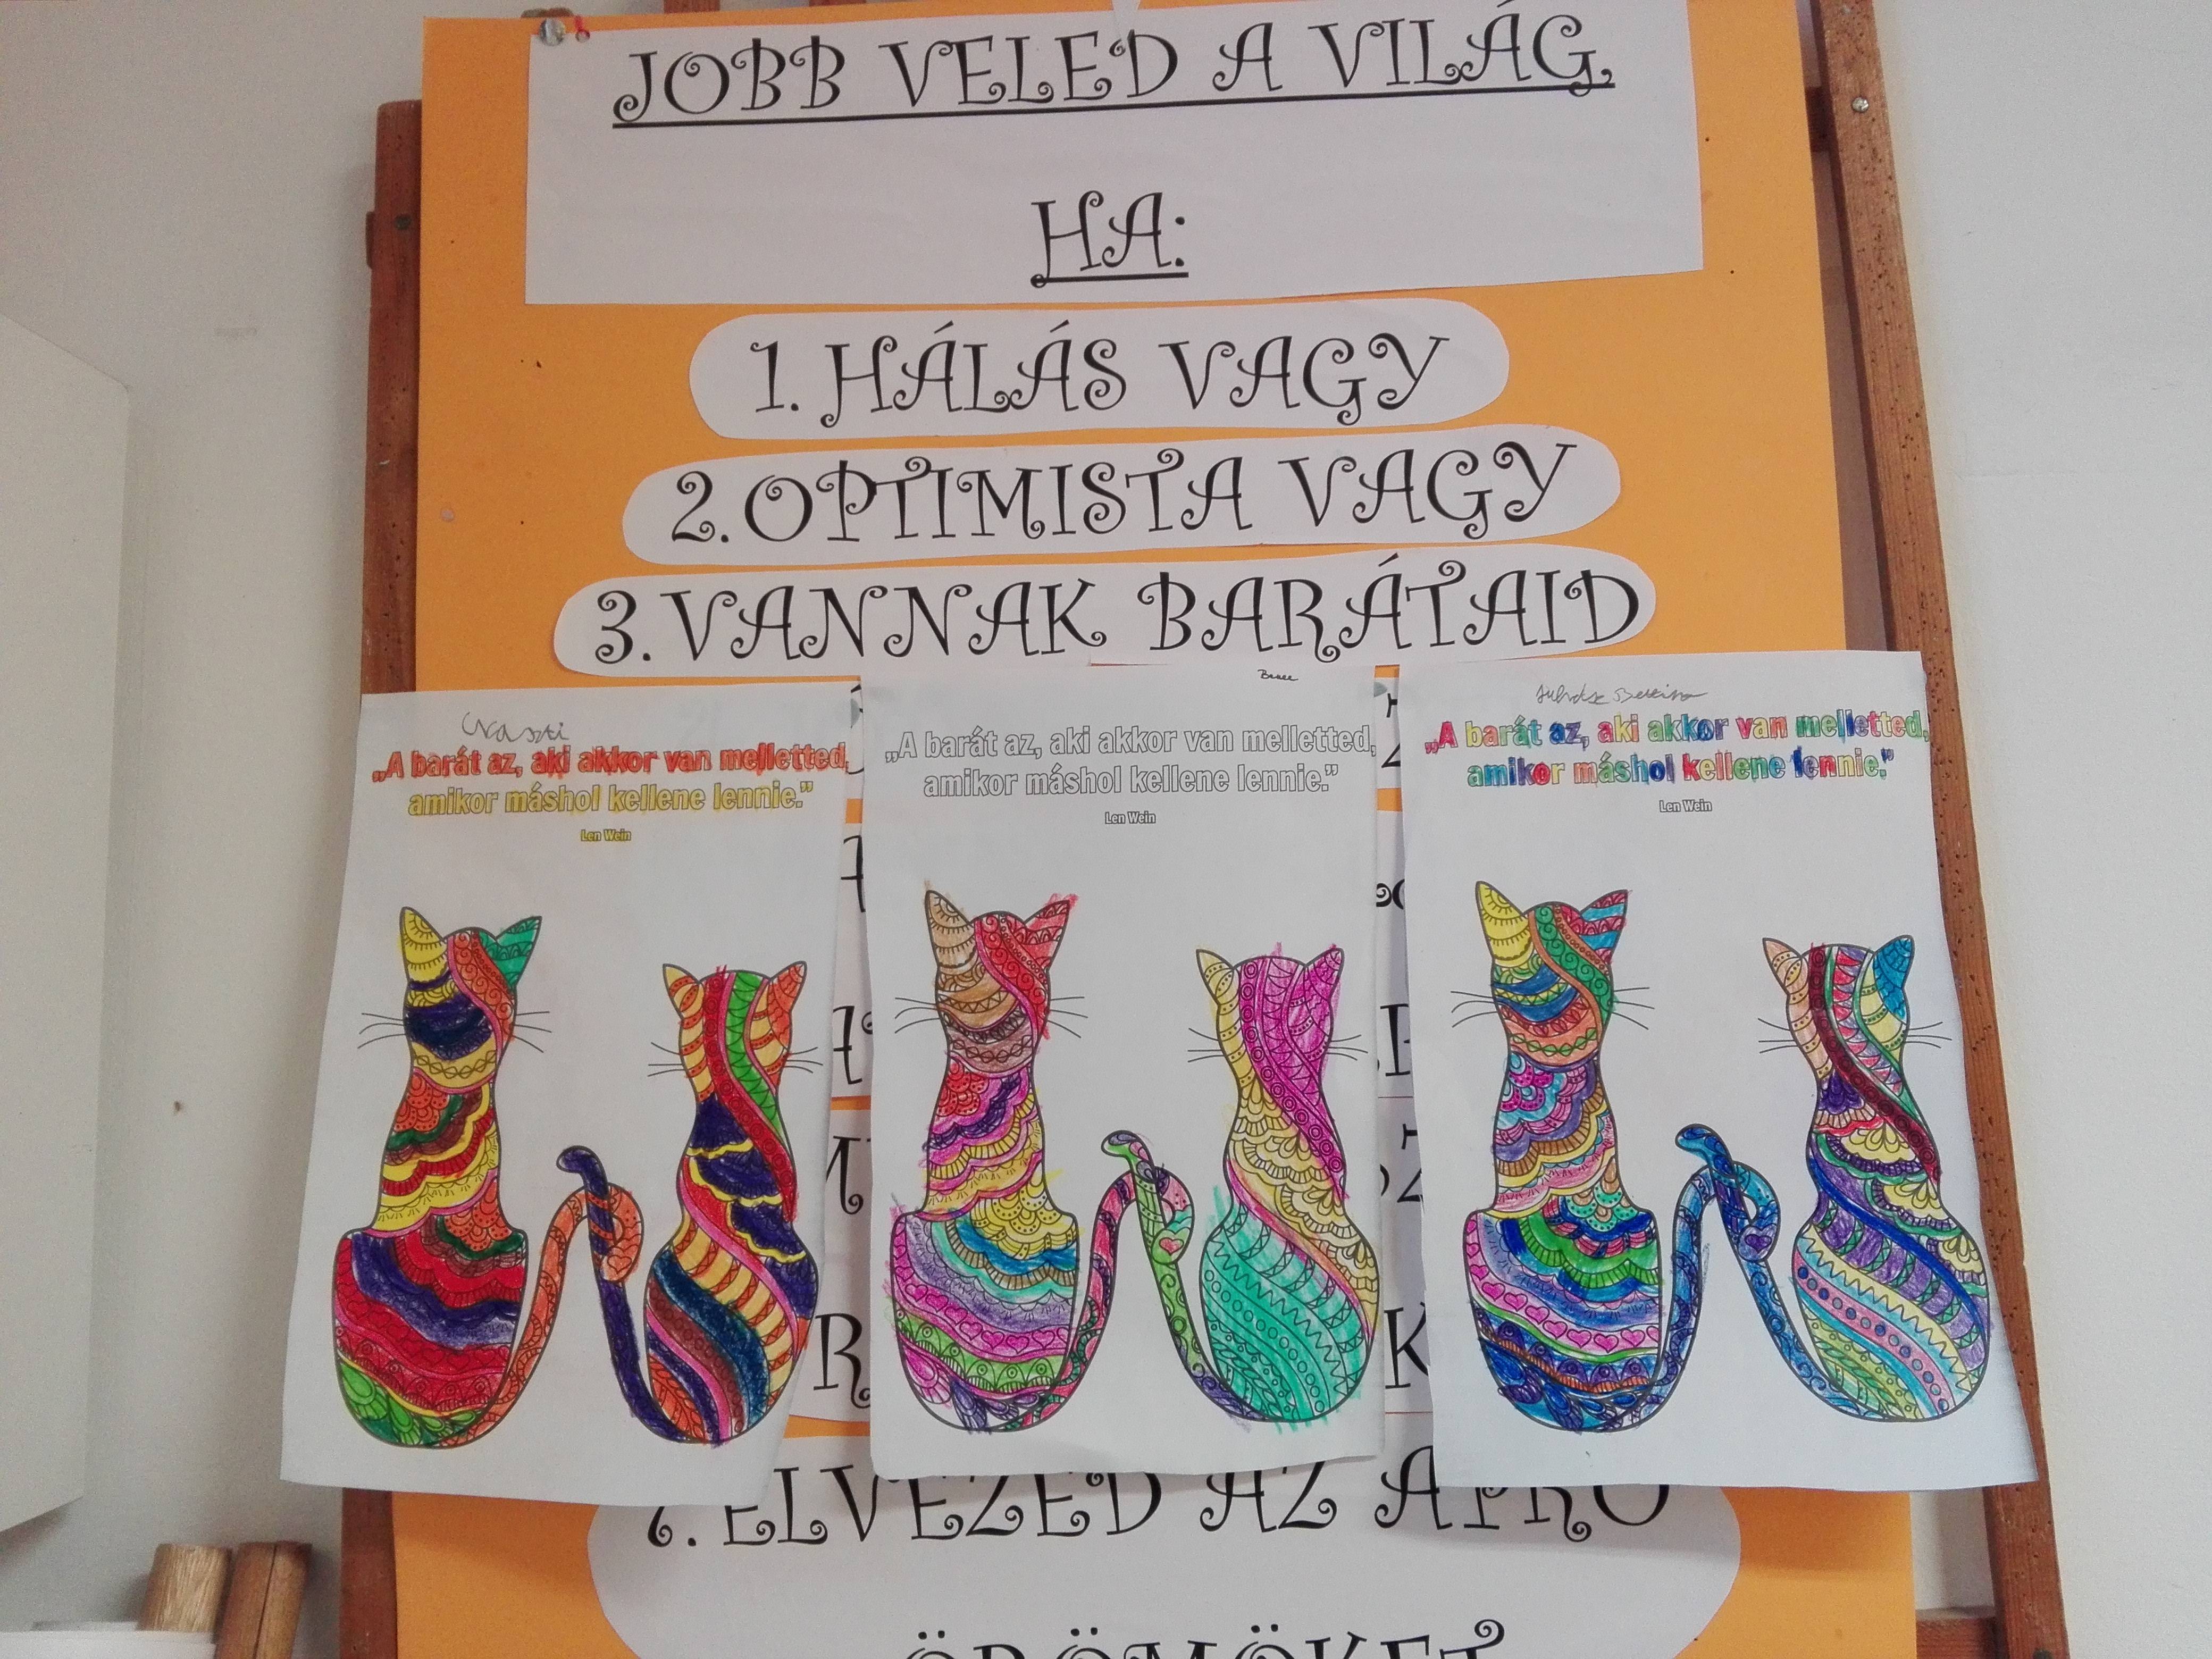 JOBB VELED A VILÁG,
HA:
1. HÁLÁS VAGY
2. OPTIMISTA VAGY
3. VANNAK BARÁTAID
Naszti
„A barát az, aki akkor van melletted,
amikor máshol kellene lennie.”
Len Wein
„A barát az, aki akkor van melletted,
amikor máshol kellene lennie.”
Len Wein
„A barát az, aki akkor van melletted,
amikor máshol kellene lennie.”
Len Wein
7. ÉLVEZED AZ APRÓ
ÖRÖMÖKET